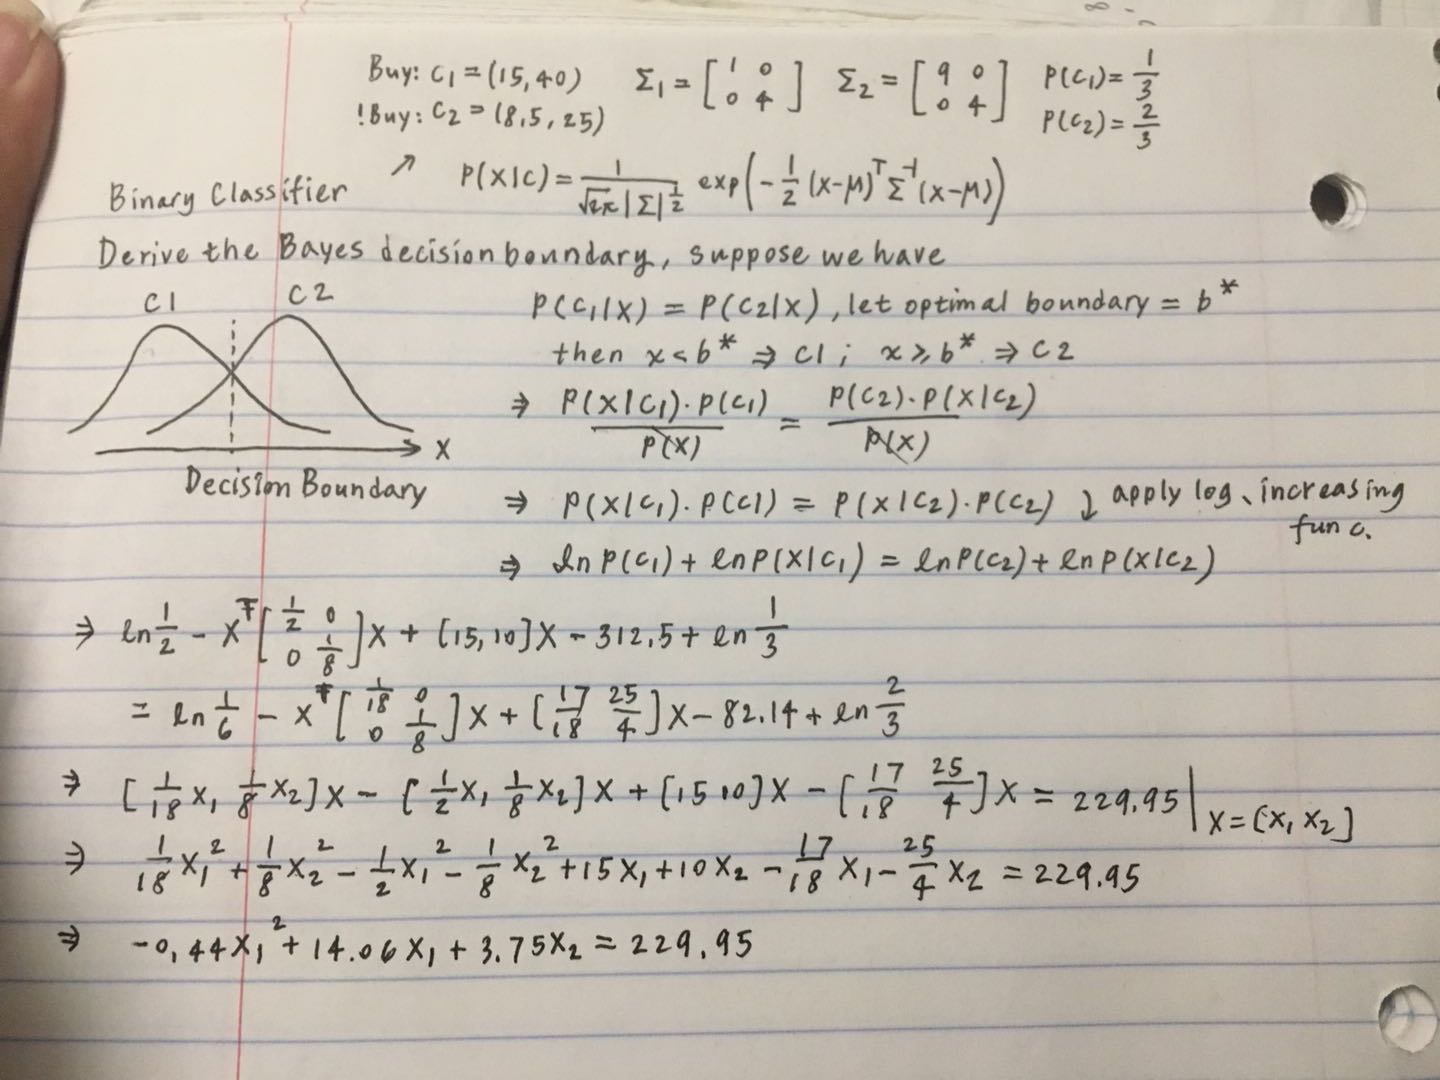 Buy: C₁ = (15, 40) Σ₁ = [1 0 0 4] Σ₂ = [9 0 0 4] P(C₁) = 1/3
!Buy: C₂ = (8.5, 25) P(C₂) = 2/3
Binary Classifier ↗ P(X|C) = 1/(√2π |Σ|^(1/2)) exp(-1/2 (X-M)ᵀ Σ⁻¹ (X-M))
Derive the Bayes decision boundary, suppose we have
C1 C2
P(C₁|X) = P(C₂|X), let optimal boundary = b*
then x < b* ⇒ C1; x ≥ b* ⇒ C2
⇒ P(X|C₁)·P(C₁)/P(X) = P(C₂)·P(X|C₂)/P(X)
X
Decision Boundary
⇒ P(X|C₁)·P(C1) = P(X|C₂)·P(C₂) ↓ apply log, increasing
func.
⇒ ln P(C₁) + ln P(X|C₁) = ln P(C₂) + ln P(X|C₂)
⇒ ln 1/2 - Xᵀ [1/2 0 0 1/8] X + [15, 10] X - 312.5 + ln 1/3
= ln 1/6 - Xᵀ [1/18 0 0 1/8] X + [17/18 25/4] X - 82.14 + ln 2/3
⇒ [1/18 X₁ 1/8 X₂] X - [1/2 X₁ 1/8 X₂] X + [15 10] X - [17/18 25/4] X = 229.95 | X = [X₁ X₂]
⇒ 1/18 X₁² + 1/8 X₂² - 1/2 X₁² - 1/8 X₂² + 15X₁ + 10X₂ - 17/18 X₁ - 25/4 X₂ = 229.95
⇒ -0.44X₁² + 14.06X₁ + 3.75X₂ = 229.95